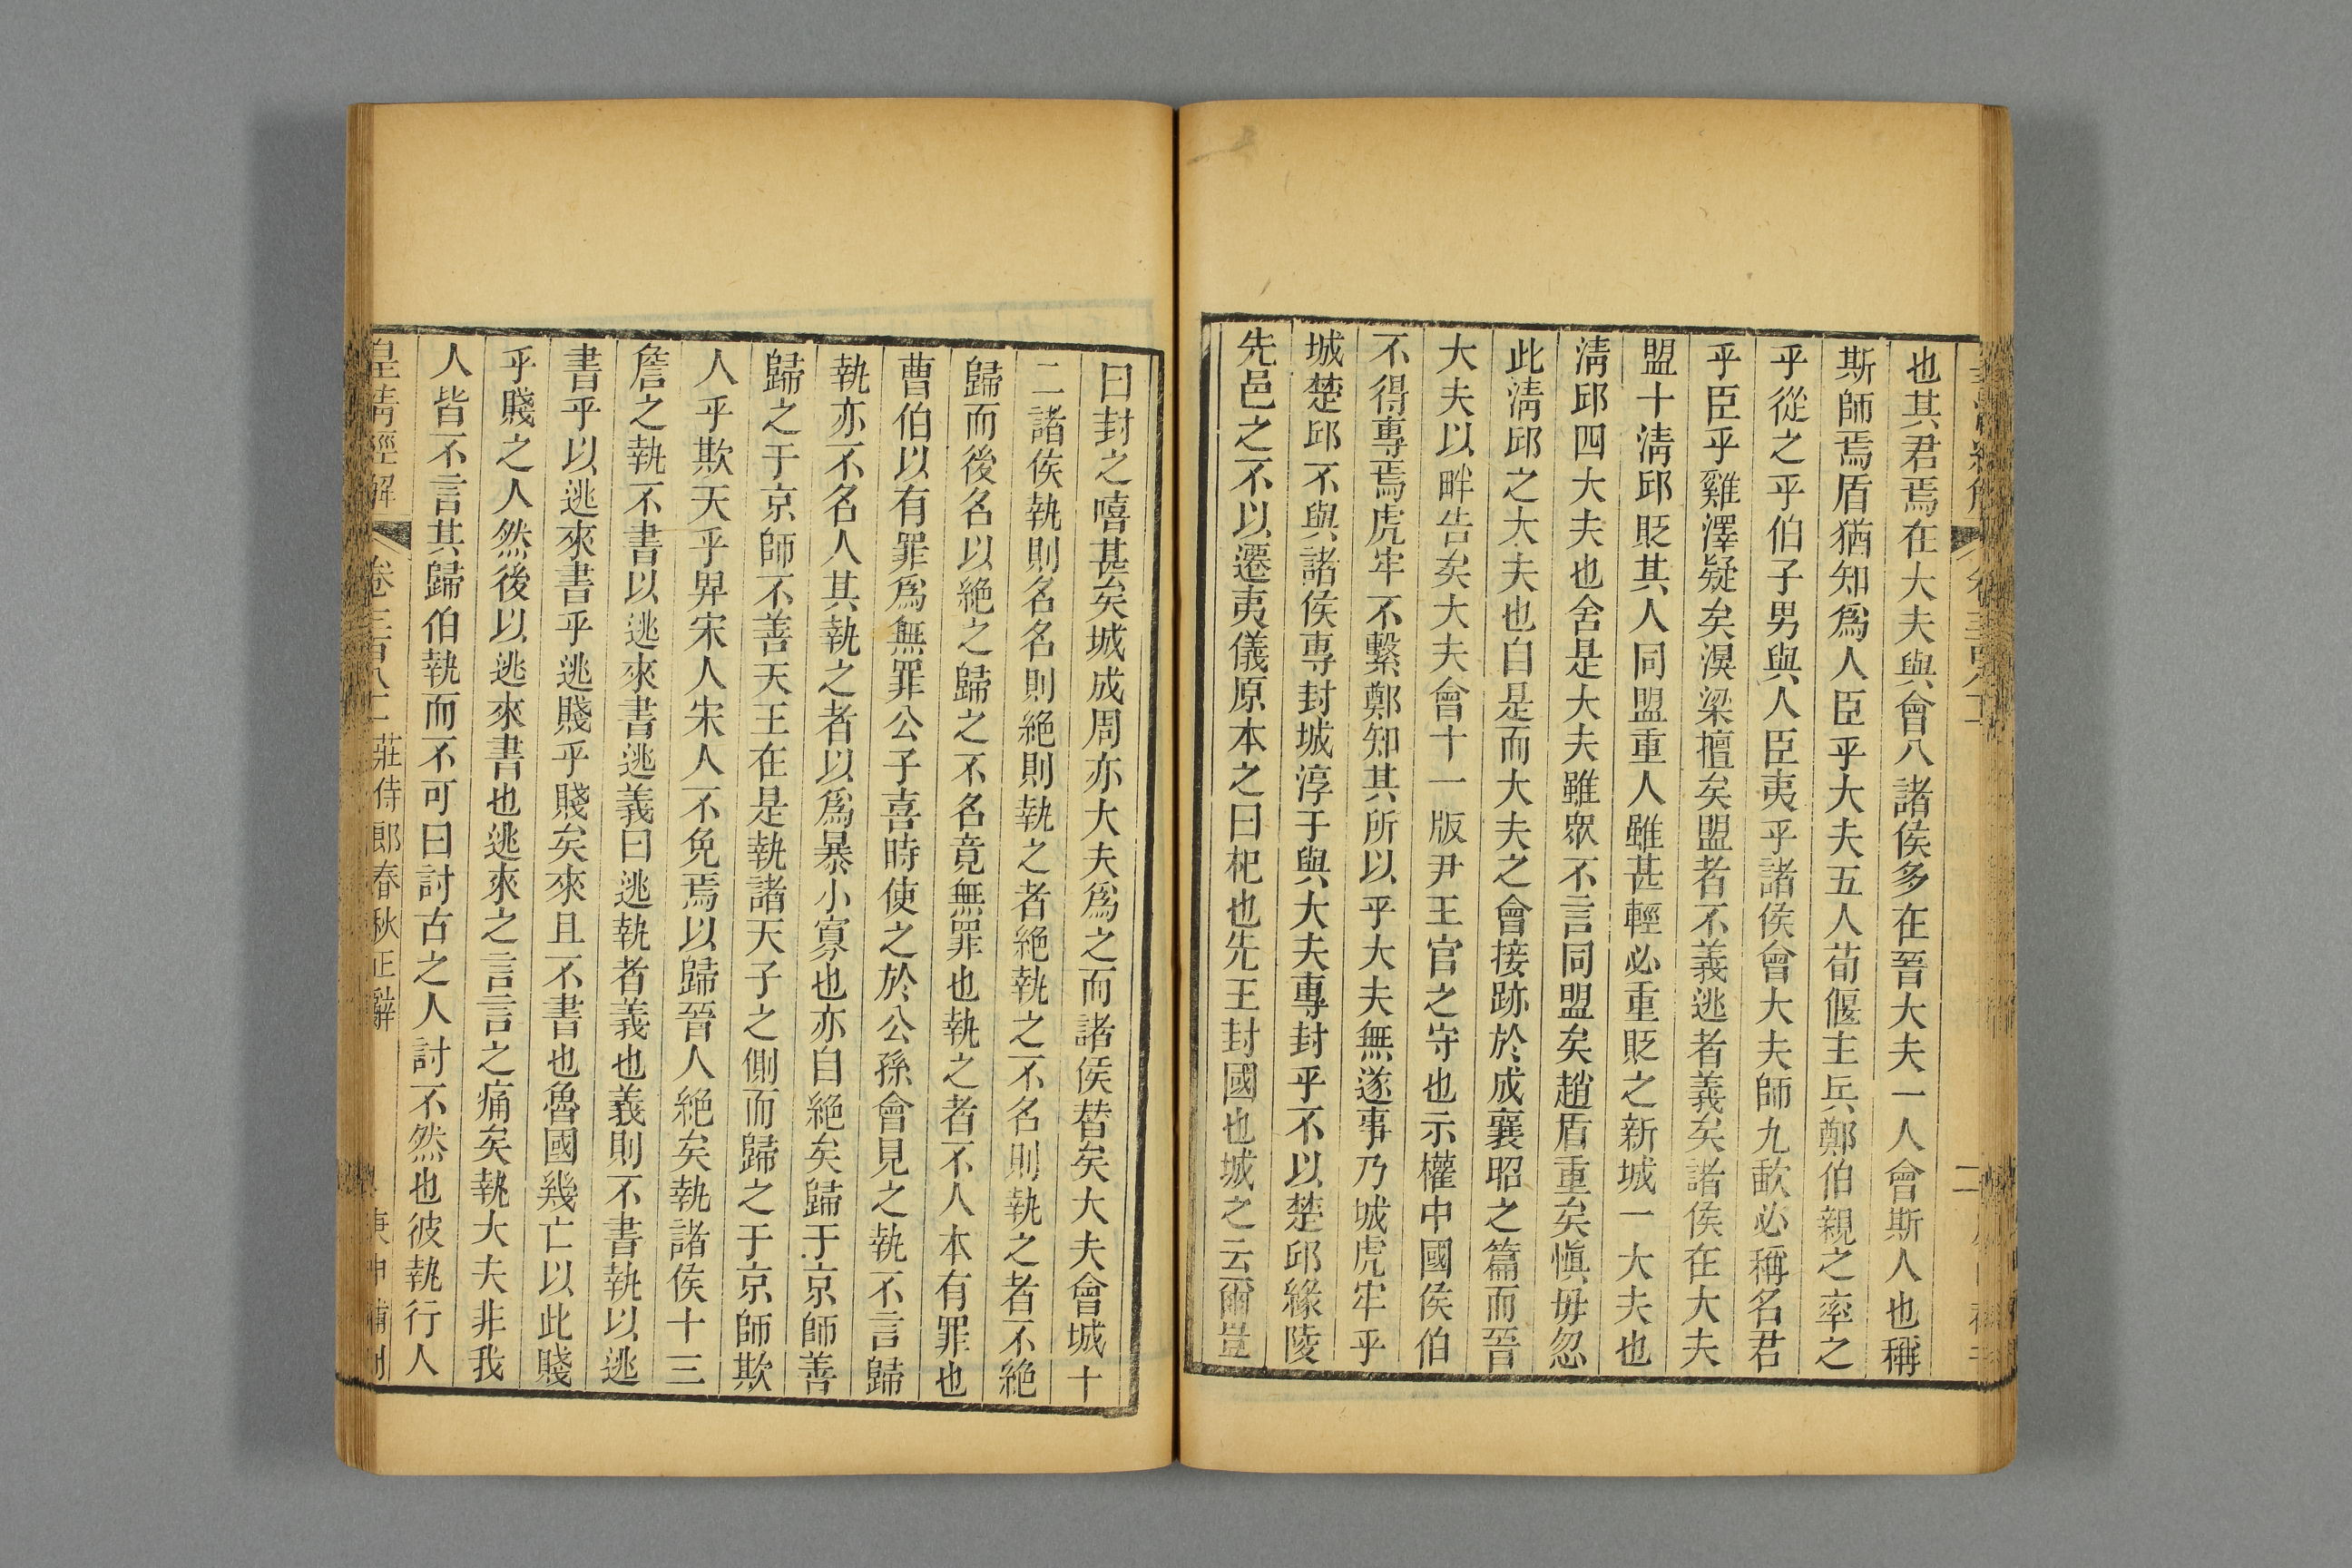 也其君焉在大夫與會八諸侯多在晉大夫一人會斯人也稱
斯師焉盾猶知爲人臣乎大夫五人荀偃主兵鄭伯親之率之
乎從之乎伯子男與人臣夷乎諸侯會大夫師九歃必稱名君
乎臣乎雞澤疑矣溴梁擅矣盟者不義逃者義矣諸侯在大夫
盟十淸邱貶其人同盟重人雖甚輕必重貶之新城一大夫也
淸邱四大夫也舍是大夫雖眾不言同盟矣趙盾重矣愼毋忽
此淸邱之大夫也自是而大夫之會接跡於成襄昭之篇而晉
大夫以畔告矣大夫會十一版尹王官之守也示權中國侯伯
不得專焉虎牢不繫鄭知其所以乎大夫無遂事乃城虎牢乎
城楚邱不與諸侯專封城淳于與大夫專封乎不以楚邱緣陵
先邑之不以遷夷儀原本之曰杞也先王封國也城之云爾豈
曰封之嘻甚矣城成周亦大夫爲之而諸侯替矣大夫會城十
二諸侯執則名名則絕則執之者絕執之不名則執之者不絕
歸而後名以絕之歸之不名竟無罪也執之者不人本有罪也
曹伯以有罪爲無罪公子喜時使之於公孫會見之執不言歸
執亦不名人其執之者以爲暴小寡也亦自絕矣歸于京師善
歸之于京師不善天王在是執諸天子之側而歸之于京師欺
人乎欺天乎畀宋人宋人不免焉以歸晉人絕矣執諸侯十三
詹之執不書以逃來書逃義曰逃執者義也義則不書執以逃
書乎以逃來書乎逃賤乎賤矣來且不書也魯國幾亡以此賤
乎賤之人然後以逃來書也逃來之言言之痛矣執大夫非我
人皆不言其歸伯執而不可曰討古之人討不然也彼執行人
皇清經解 卷三百八十 莊侍郎春秋正辭 庚申補刊